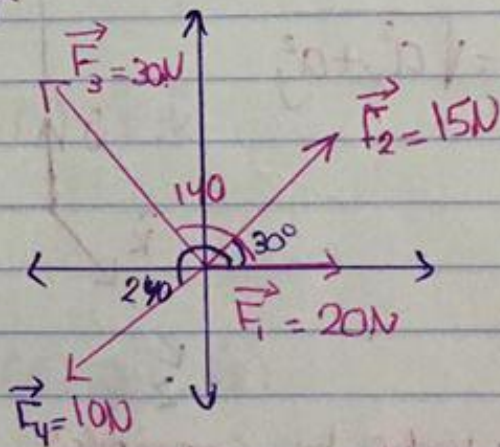 F₃ = 30N
F₂ = 15N
140
30°
F₁ = 20N
F₄ = 10N